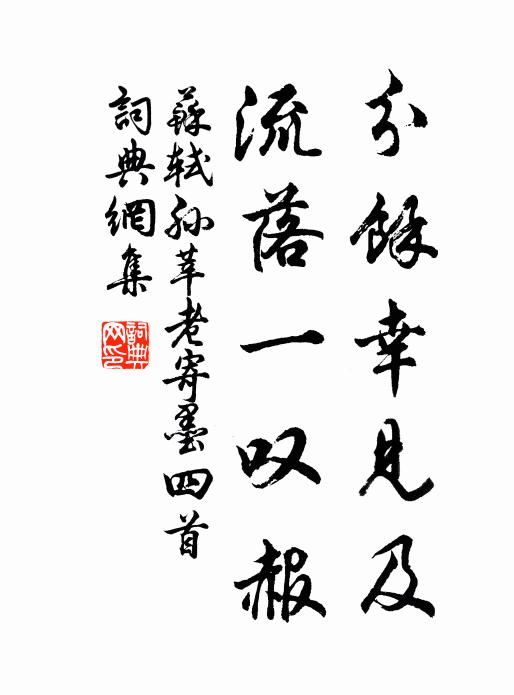 分餘幸見及
流落一叹赧
蘇軾孫莘老寄墨四首
詞典網集
詞典网印